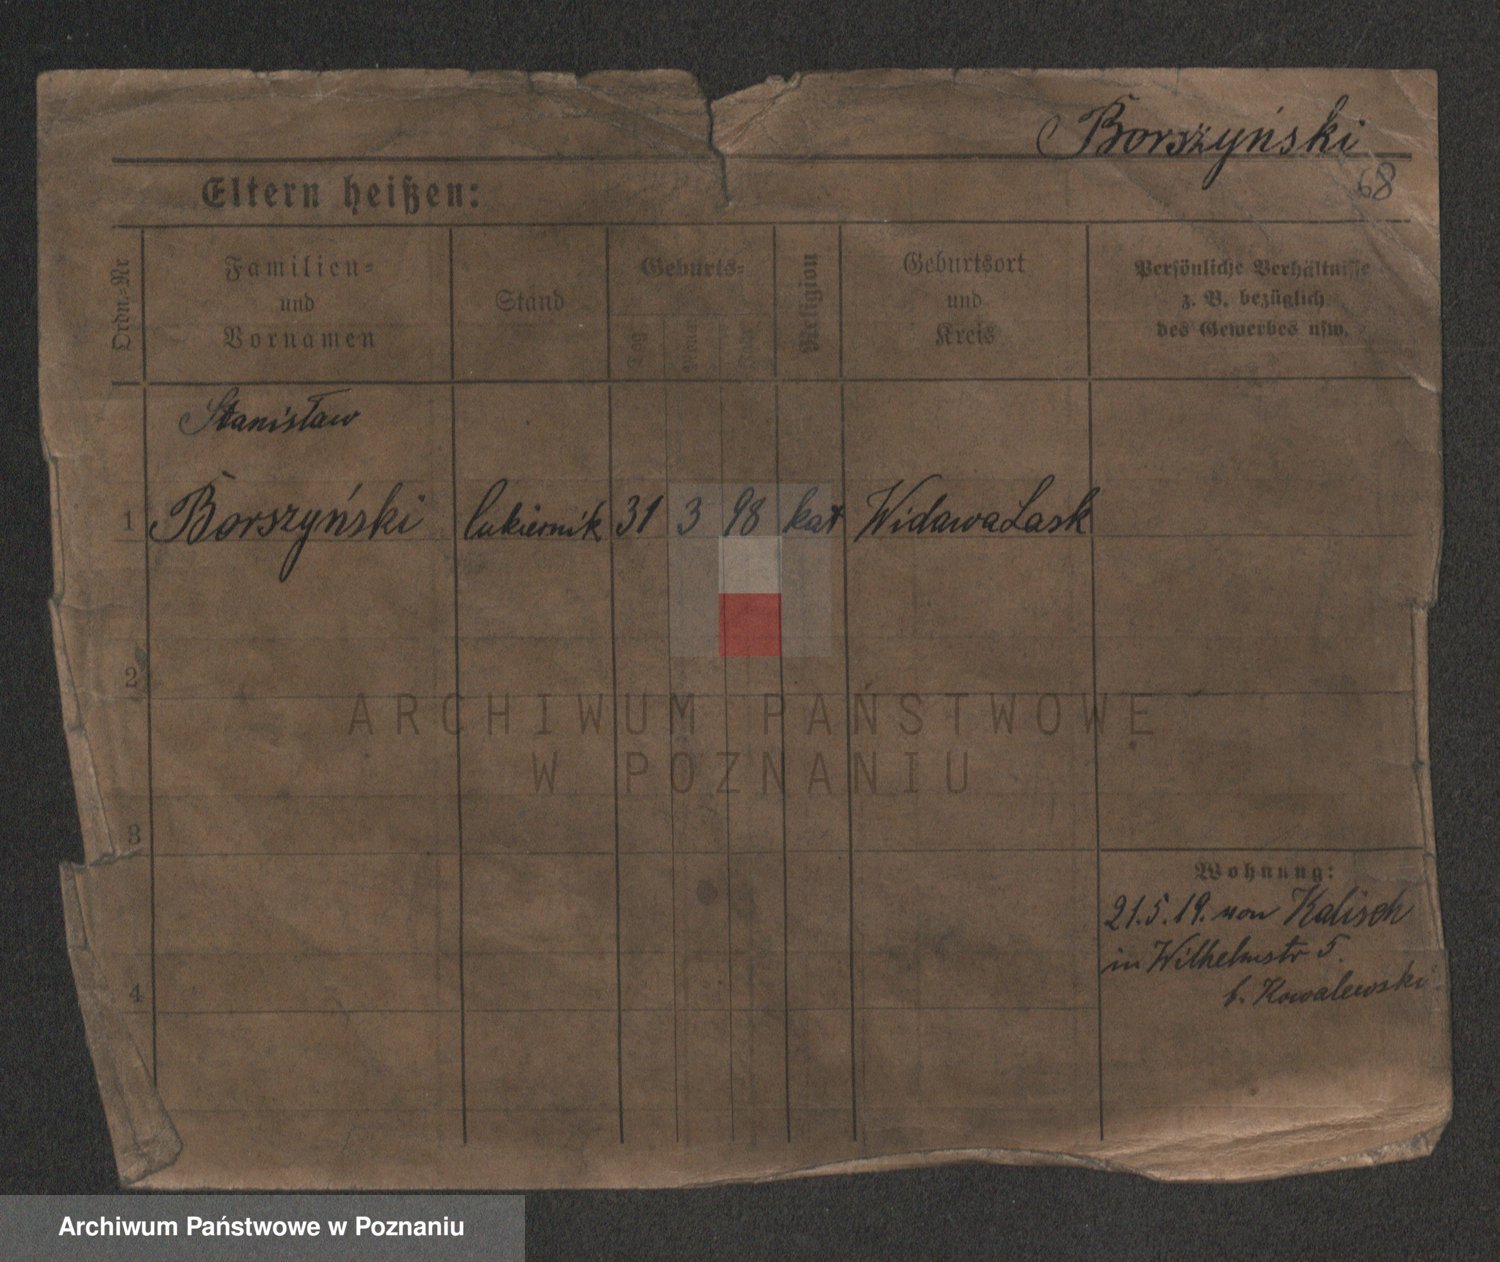 Borszyński
68
Eltern heißen:
Ordn.-Nr
Familien-
und
Vornamen
Stand
Geburts-
Tag
Jahr
Religion
Geburtsort
und
Kreis
Persönliche Verhältnisse
z. B. bezüglich
des Gewerbes usw.
Stanisław
1 Borszyński cukiernik 31 3 98 kat Widawa Lask
2
ARCHIWUM PAŃSTWOWE
W POZNANIU
3
Wohnung:
21.5.19. von Kalisch
in Wilhelmstr 5.
b. Kowalewski
4
Archiwum Państwowe w Poznaniu